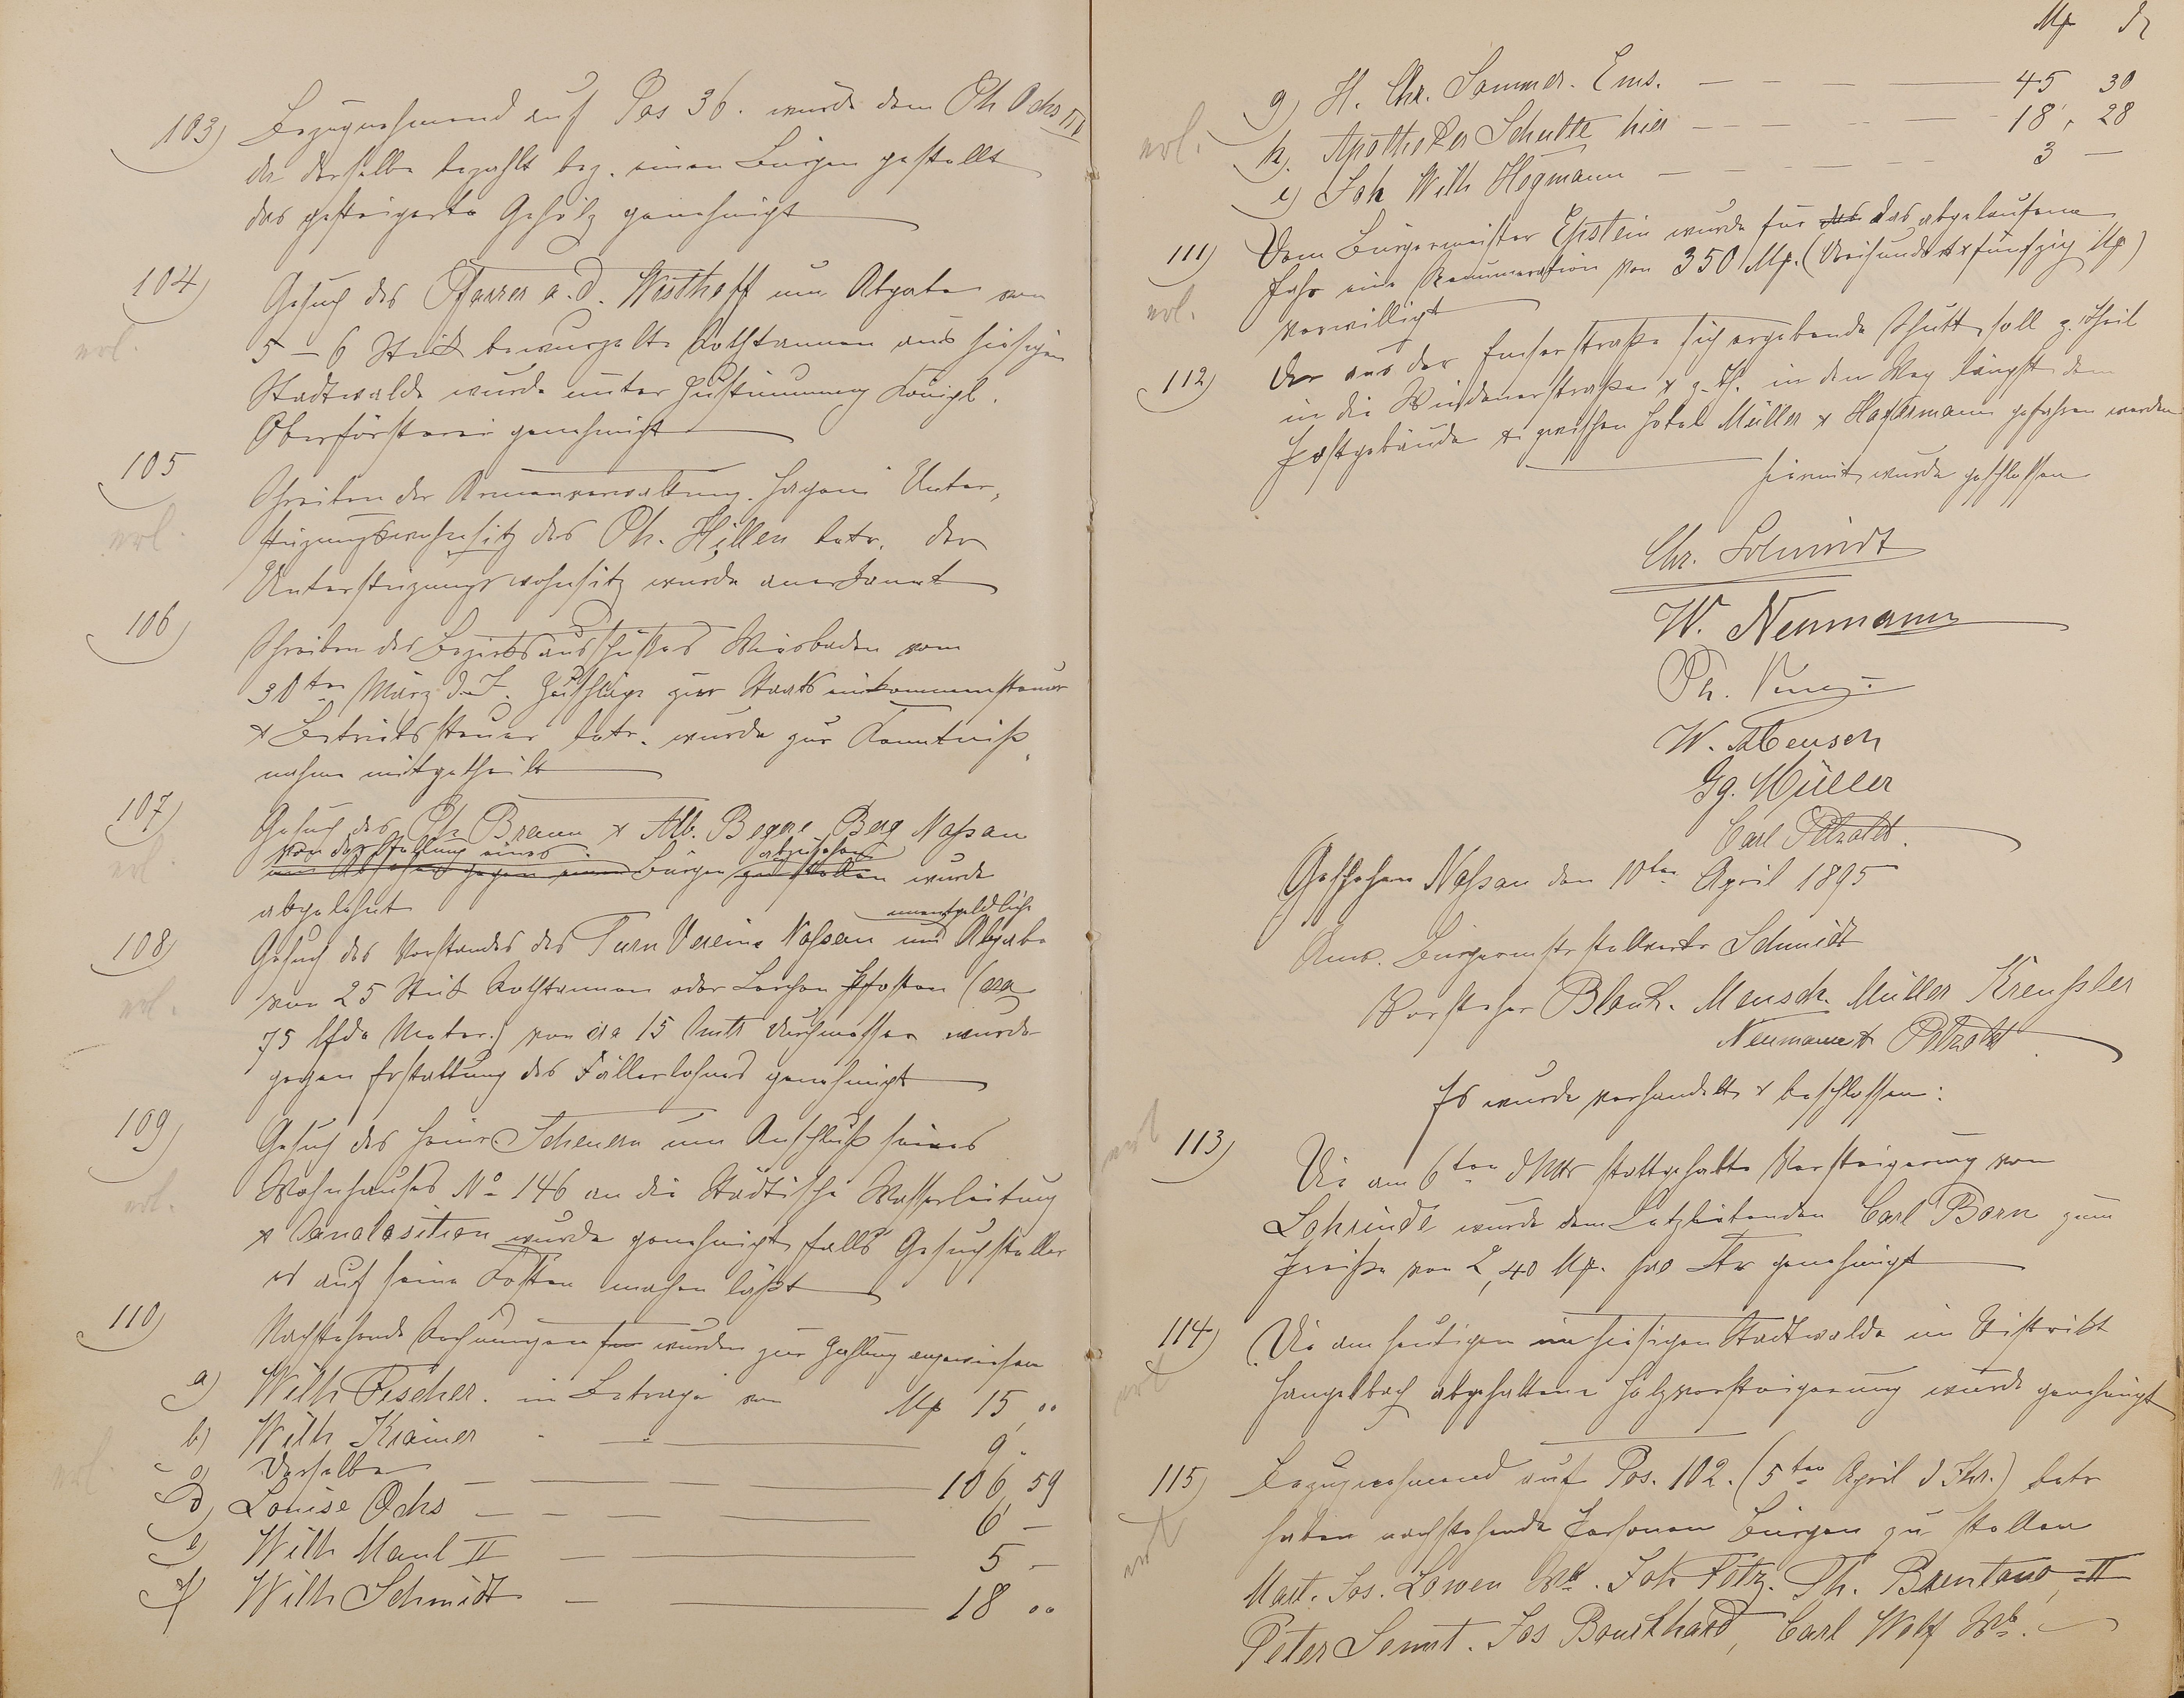 103) Bezugnehmend auf Pos 36. wurde dem Ph Ochs III
da derselbe bezahlt bez. einen Bürgen gestellt
das gesteigerte Gehölz genehmigt
104) Gesuch des Pfarrer a. d. Westhoff um Abgabe von
vol.
5 – 6 Stück bewurzelte Rothtannen aus hiesigen
Stadtwalde wurde unter Zustimmung Königl.
Oberförsterei genehmigt
105 Schreiben der Armenverwaltung Hagen Unter-
vol.
stüzungswohnsitz des Ph. Hillen betr. der
Unterstüzungswohnsitz wurde anerkannt
106) Schreiben des Bezirksausschußes Wiesbaden vom
30ten März d. J. Zuschläge zur Staatseinkommensteuer
& Betriebssteuer betr. wurde zur Kenntniß-
nahme mitgetheilt
107) Gesuch des Chr Braun & Alb. Berg Naßau
vol.
von der Stellung eines Bürgen abzusehen wurde
abgelehnt
108) Gesuch des Vorstandes des Turn Vereins Naßau um unentgeldliche Abgabe
vol.
von 25 Stück Rothtannen oder Lerchen Pfosten (ca
75 lfde Meter) von ca 15 Cmtr Durchmesser wurde
gegen Erstattung des Fällerlohnes genehmigt
109) Gesuch des Heinr. Scheuern um Anschluß seines
vol.
Wohnhauses No 146 an die Städtische Wasserleitung
& Canalasition wurde genehmigt falls Gesuchsteller
es auf seine Kosten machen läßt
110) Nachstehende Rechnungen wurden zur Zahlung angewiesen
a) Wilh Fischer. in Betrage von Mk 15,00
b) Wilh Kramer — 9 -
vol.
c) Derselbe — 106,59
d) Louise Ochs — 6 —
e) Wilh Maul II — 5 —
f) Wilh Schmidt — 18 00
Mk
g) H. Chr. Sommer. Ems. — 45 30
vol.
h) Apotheker Schulte hier — 18, 28
i) Joh Wilh Hegmann — 3 —
111) Dem Bürgermeister Epstein wurde für das das abgelaufene
Jahr eine Remuneration von 350 Mk. (Dreihundert & fünfzig Mk)
vol.
verwilligt
112) Der aus der Emserstraße sich ergebende Schutt soll z. Theil
in die Windenerstraße & z. Th. in den Weg längst dem
Postgebäude & zwischen Hotel Müller & gefahren werden
hiermit wurde geschlossen
Chr. Schmidt
W. Neumann
Ph.
W. Mensch
Gg. Müller
Carl Petzoldt.
Geschehen Naßau den 10ten April 1895
Anw. Bürgermstrstellvertr Schmidt
Vorsteher Blank. Mensch. Müller Kreußler
Neumann & Petzoldt
Es wurde verhandelt & beschlossen:
vol
113) Die am 6ten d Mts stattgehabte Versteigerung von
Lohrinde wurde dem Letztbietenden Carl Born zum
Preiße von 2,40 Mk. pro Ctr genehmigt
114) Die am heutigen im hiesigen Stadtwalde im Distrikt
vol
Hangelbach abgehaltene Holzversteigerung wurde genehmigt
115) Bezugnehmend auf Pos. 102. (5ten April d Jhr.) betr
haben nachstehende Personen Bürgen zu stellen
vol
Mart. Jos. Löwen We. Joh Fetz. Ph. Brentano II
Peter Sennt. Jos Bourkhard, Carl Wolf We.